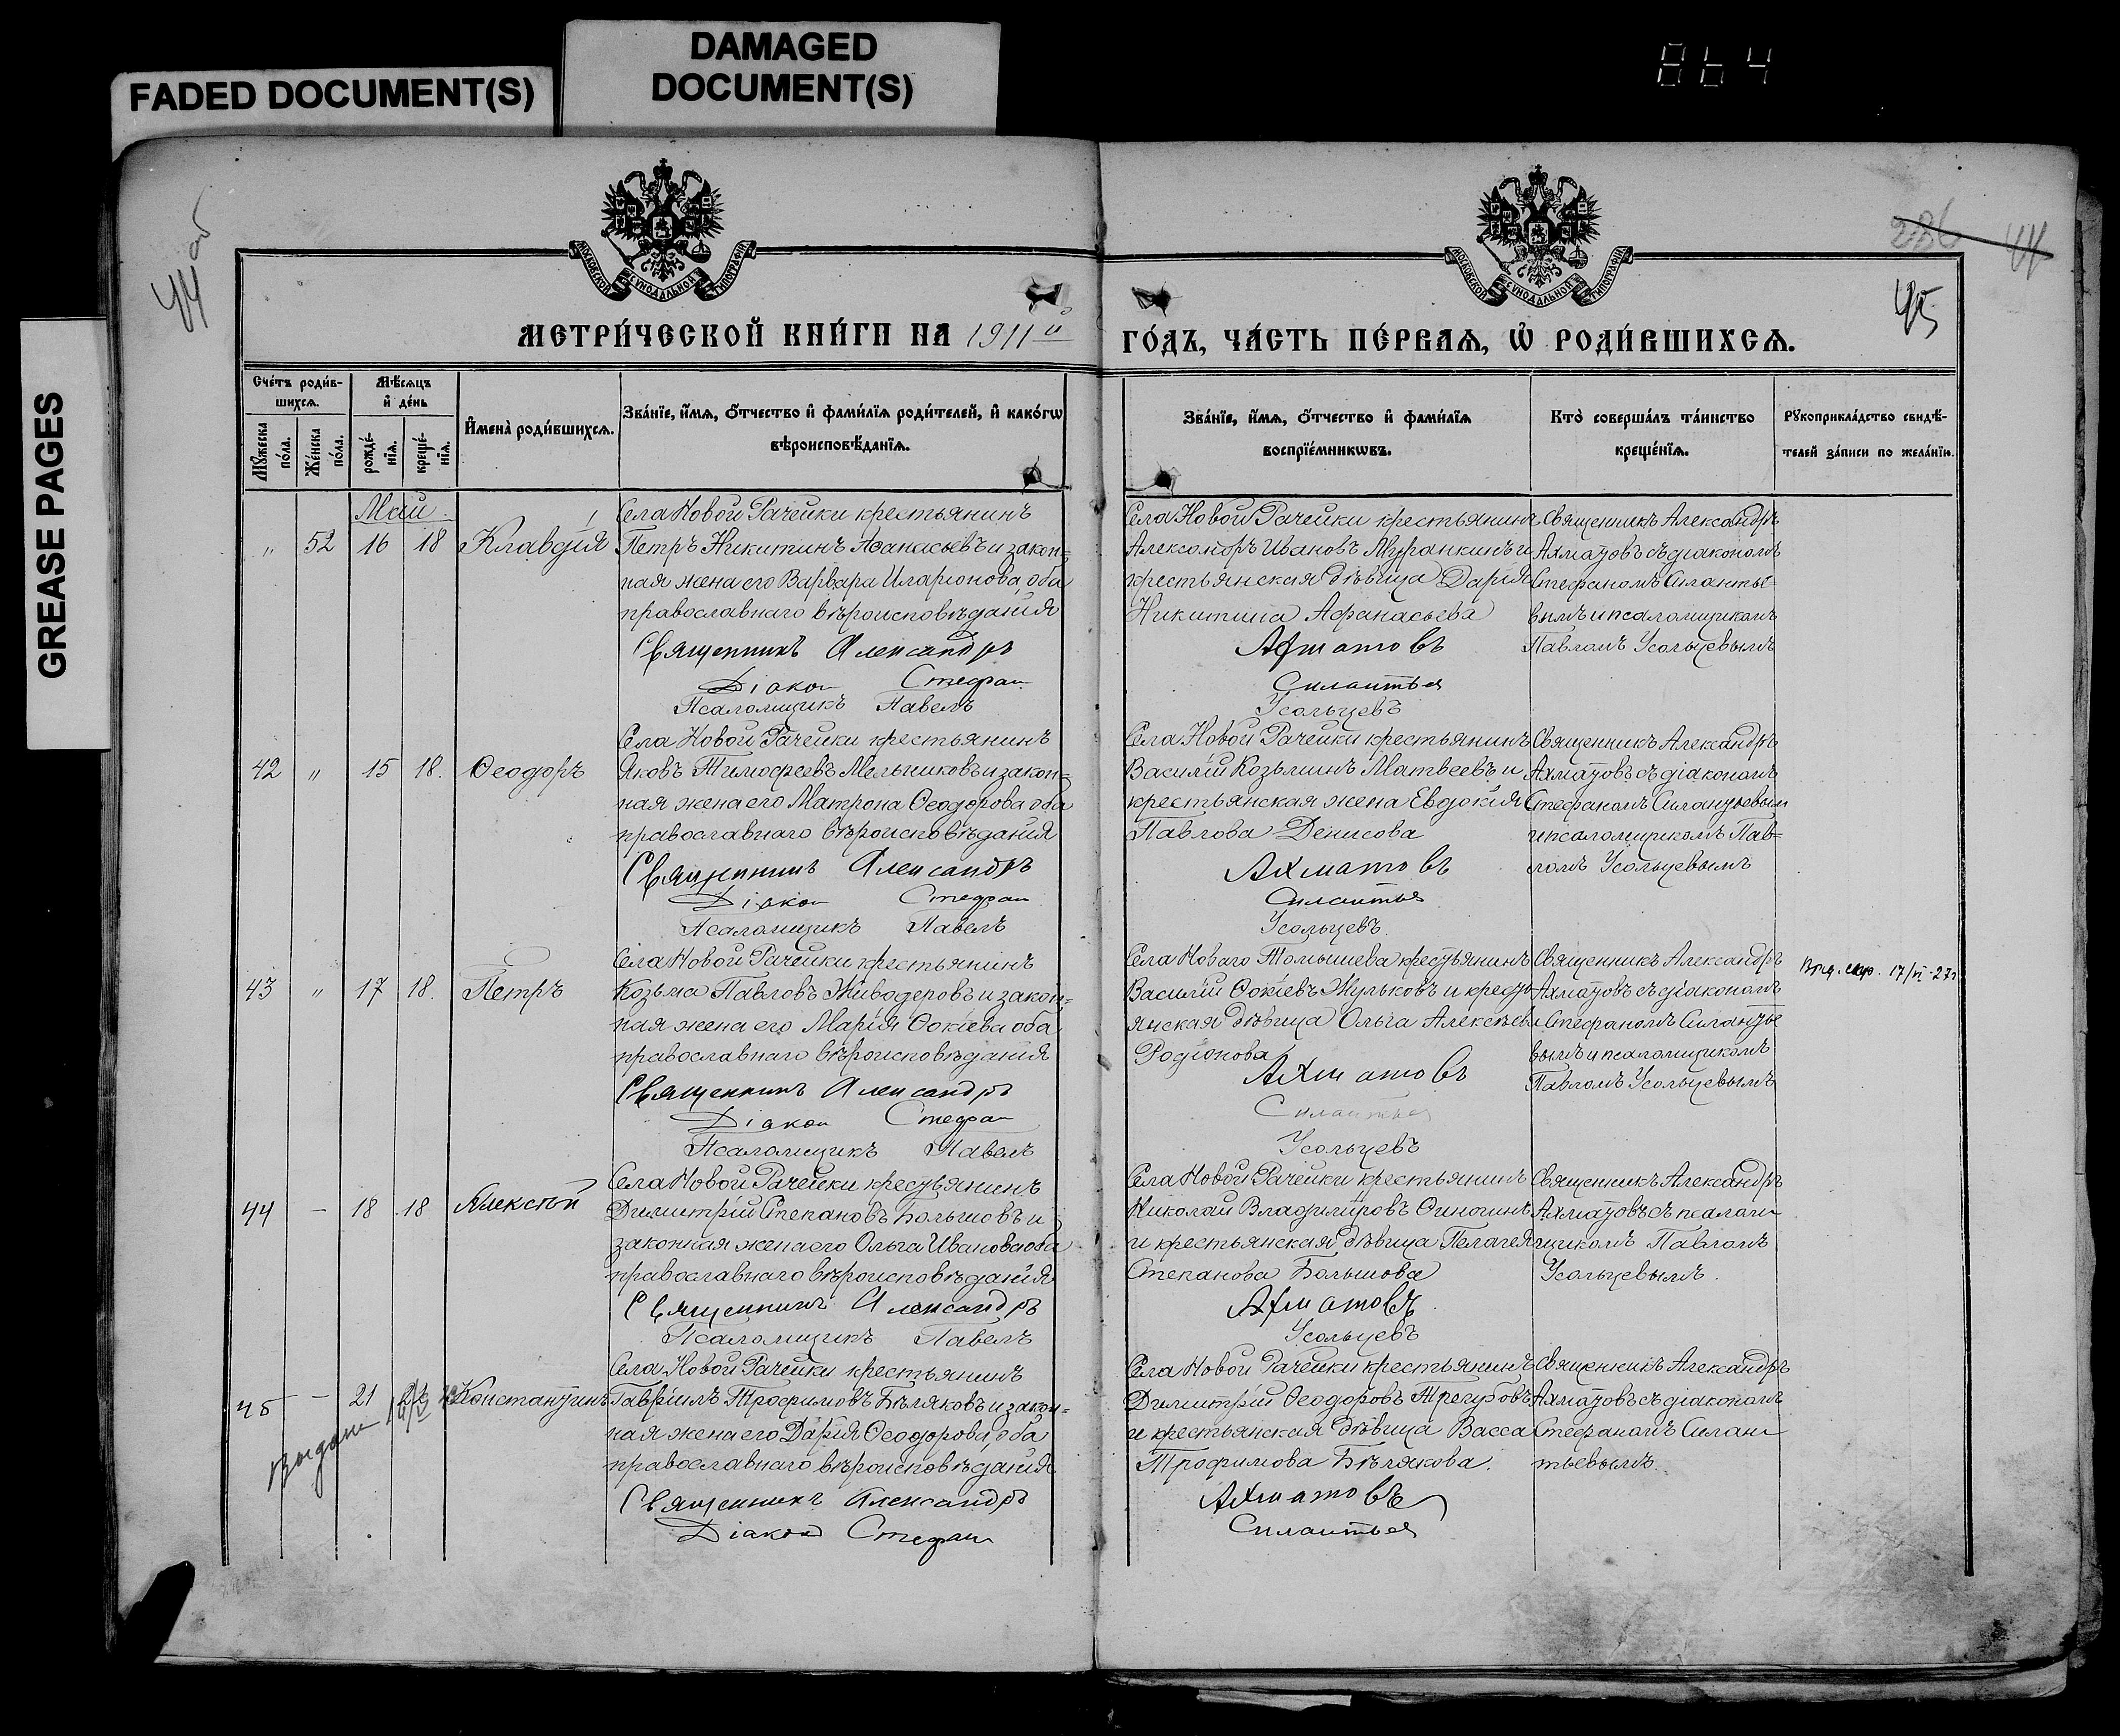 FADED DOCUMENT(S)
DAMAGED
DOCUMENT(S)
GREASE PAGES
864
44 об
236
44
45
МОСКОВСКОЙ СѴНОДАЛЬНОЙ ТИПОГРАФІИ
МОСКОВСКОЙ СѴНОДАЛЬНОЙ ТИПОГРАФІИ
МЕТРИ́ЧЕСКОЙ КНИ́ГИ НА 1911й
ГО́ДЪ, ЧА́СТЬ ПЕ́РВАѦ, Ѽ РОДИ́ВШИХСѦ.
Сче́тъ роди́в-
шихсѧ.
Мꙋжеска
по́ла.
Же́нска
по́ла.
Мѣ́сѧцъ
и҆ де́нь
рожде́-
нїѧ.
креще́-
нїѧ.
И҆мена̀ роди́вшихсѧ.
Зва́нїе, и҆́мѧ, ѻ҆́тчество и҆ фами́лїѧ роди́телей, и҆ како́гѡ
вѣроисповѣ́данїѧ.
Зва́нїе, и҆́мѧ, ѻ҆́тчество и҆ фами́лїѧ
воспрїе́мникѡвъ.
Кто̀ соверша́лъ та́инство
креще́нїѧ.
Рꙋкоприкла́дство свидѣ́-
телей за́писи по жела́нїю.
Май
" 52 16 18 Клавдія
Села Новой Рачейки крестьянинъ
Петръ Никитинъ Аѳанасьевъ и закон=
ная жена его Варвара Иларіонова, оба
православнаго вѣроисповѣданія
Священникъ Александръ
Діакон Стефан
Псаломщикъ Павелъ
Села Новой Рачейки крестьянинъ
Александръ Ивановъ Муранкинъ и
крестьянская дѣвица Дарія
Никитина Афанасьева
Ахматовъ
Силантьев
Усольцевъ
Священникъ Александръ
Ахматовъ съ діакономъ
Стефаномъ Силантье
вымъ и псаломщикомъ
Павломъ Усольцевымъ
42 " 15 18. Ѳеодоръ
Села Новой Рачейки крестьянинъ
Яковъ Тимофеевъ Мельниковъ и закон=
ная жена его Матрона Ѳеодорова оба
православнаго вѣроисповѣданія
Священникъ Александръ
Діакон Стефан
Псаломщикъ Павелъ
Села Новой Рачейки крестьянинъ
Василій Козьминъ Матвеевъ и
крестьянская жена Евдокія
Павлова Денисова
Ахматовъ
Силантьев
Усольцевъ.
Священникъ Александръ
Ахматовъ съ діакономъ
Стефаномъ Силантьевым
и псаломщикомъ Пав=
ломъ Усольцевымъ
43 " 17 18. Петръ
Села Новой Рачейки крестьянинъ
Козьма Павловъ Живодеровъ и закон=
ная жена его Марія Ѳокіева оба
православнаго вѣроисповѣданія
Священникъ Александръ
Діакон Стефан
Псаломщикъ Павелъ
Села Новаго Томышева крестьянинъ
Василій Ѳокіевъ Жульковъ и кресть
янская дѣвица Ольга Алексѣева
Родіонова
Ахматовъ
Силантьев
Усольцевъ
Священникъ Александръ
Ахматовъ съ діакономъ
Стефаномъ Силантье
вымъ и псаломщикомъ
Павломъ Усольцевымъ
17/VI-27г
44 — 18 18 Алексѣй
Села Новой Рачейки крестьянинъ
Димитрій Степановъ Большовъ и
законная жена его Ольга Иванова оба
православнаго вѣроисповѣданія
Священникъ Александръ
Псаломщикъ Павелъ
Села Новой Рачейки крестьянинъ
Николай Владиміровъ
и крестьянская дѣвица Пелагея
Степанова Большова
Ахматовъ
Усольцевъ
Священникъ Александръ
Ахматовъ съ псалом
щикомъ Павломъ
Усольцевымъ.
45 — 21 22 Константинъ
Выдан
Села Новой Рачейки крестьянинъ
Гавріилъ Трофимовъ Бѣляковъ и закон=
ная жена его Дарія Ѳеодорова, оба
православнаго вѣроисповѣданія
Священникъ Александръ
Діакон Стефан
Села Новой Рачейки крестьянинъ
Димитрій Ѳеодоровъ Трегубовъ
и крестьянская дѣвица Васса
Трофимова Бѣлякова.
Ахматовъ
Силантьев
Священникъ Александръ
Ахматовъ съ діакономъ
Стефаномъ Силан
тьевымъ